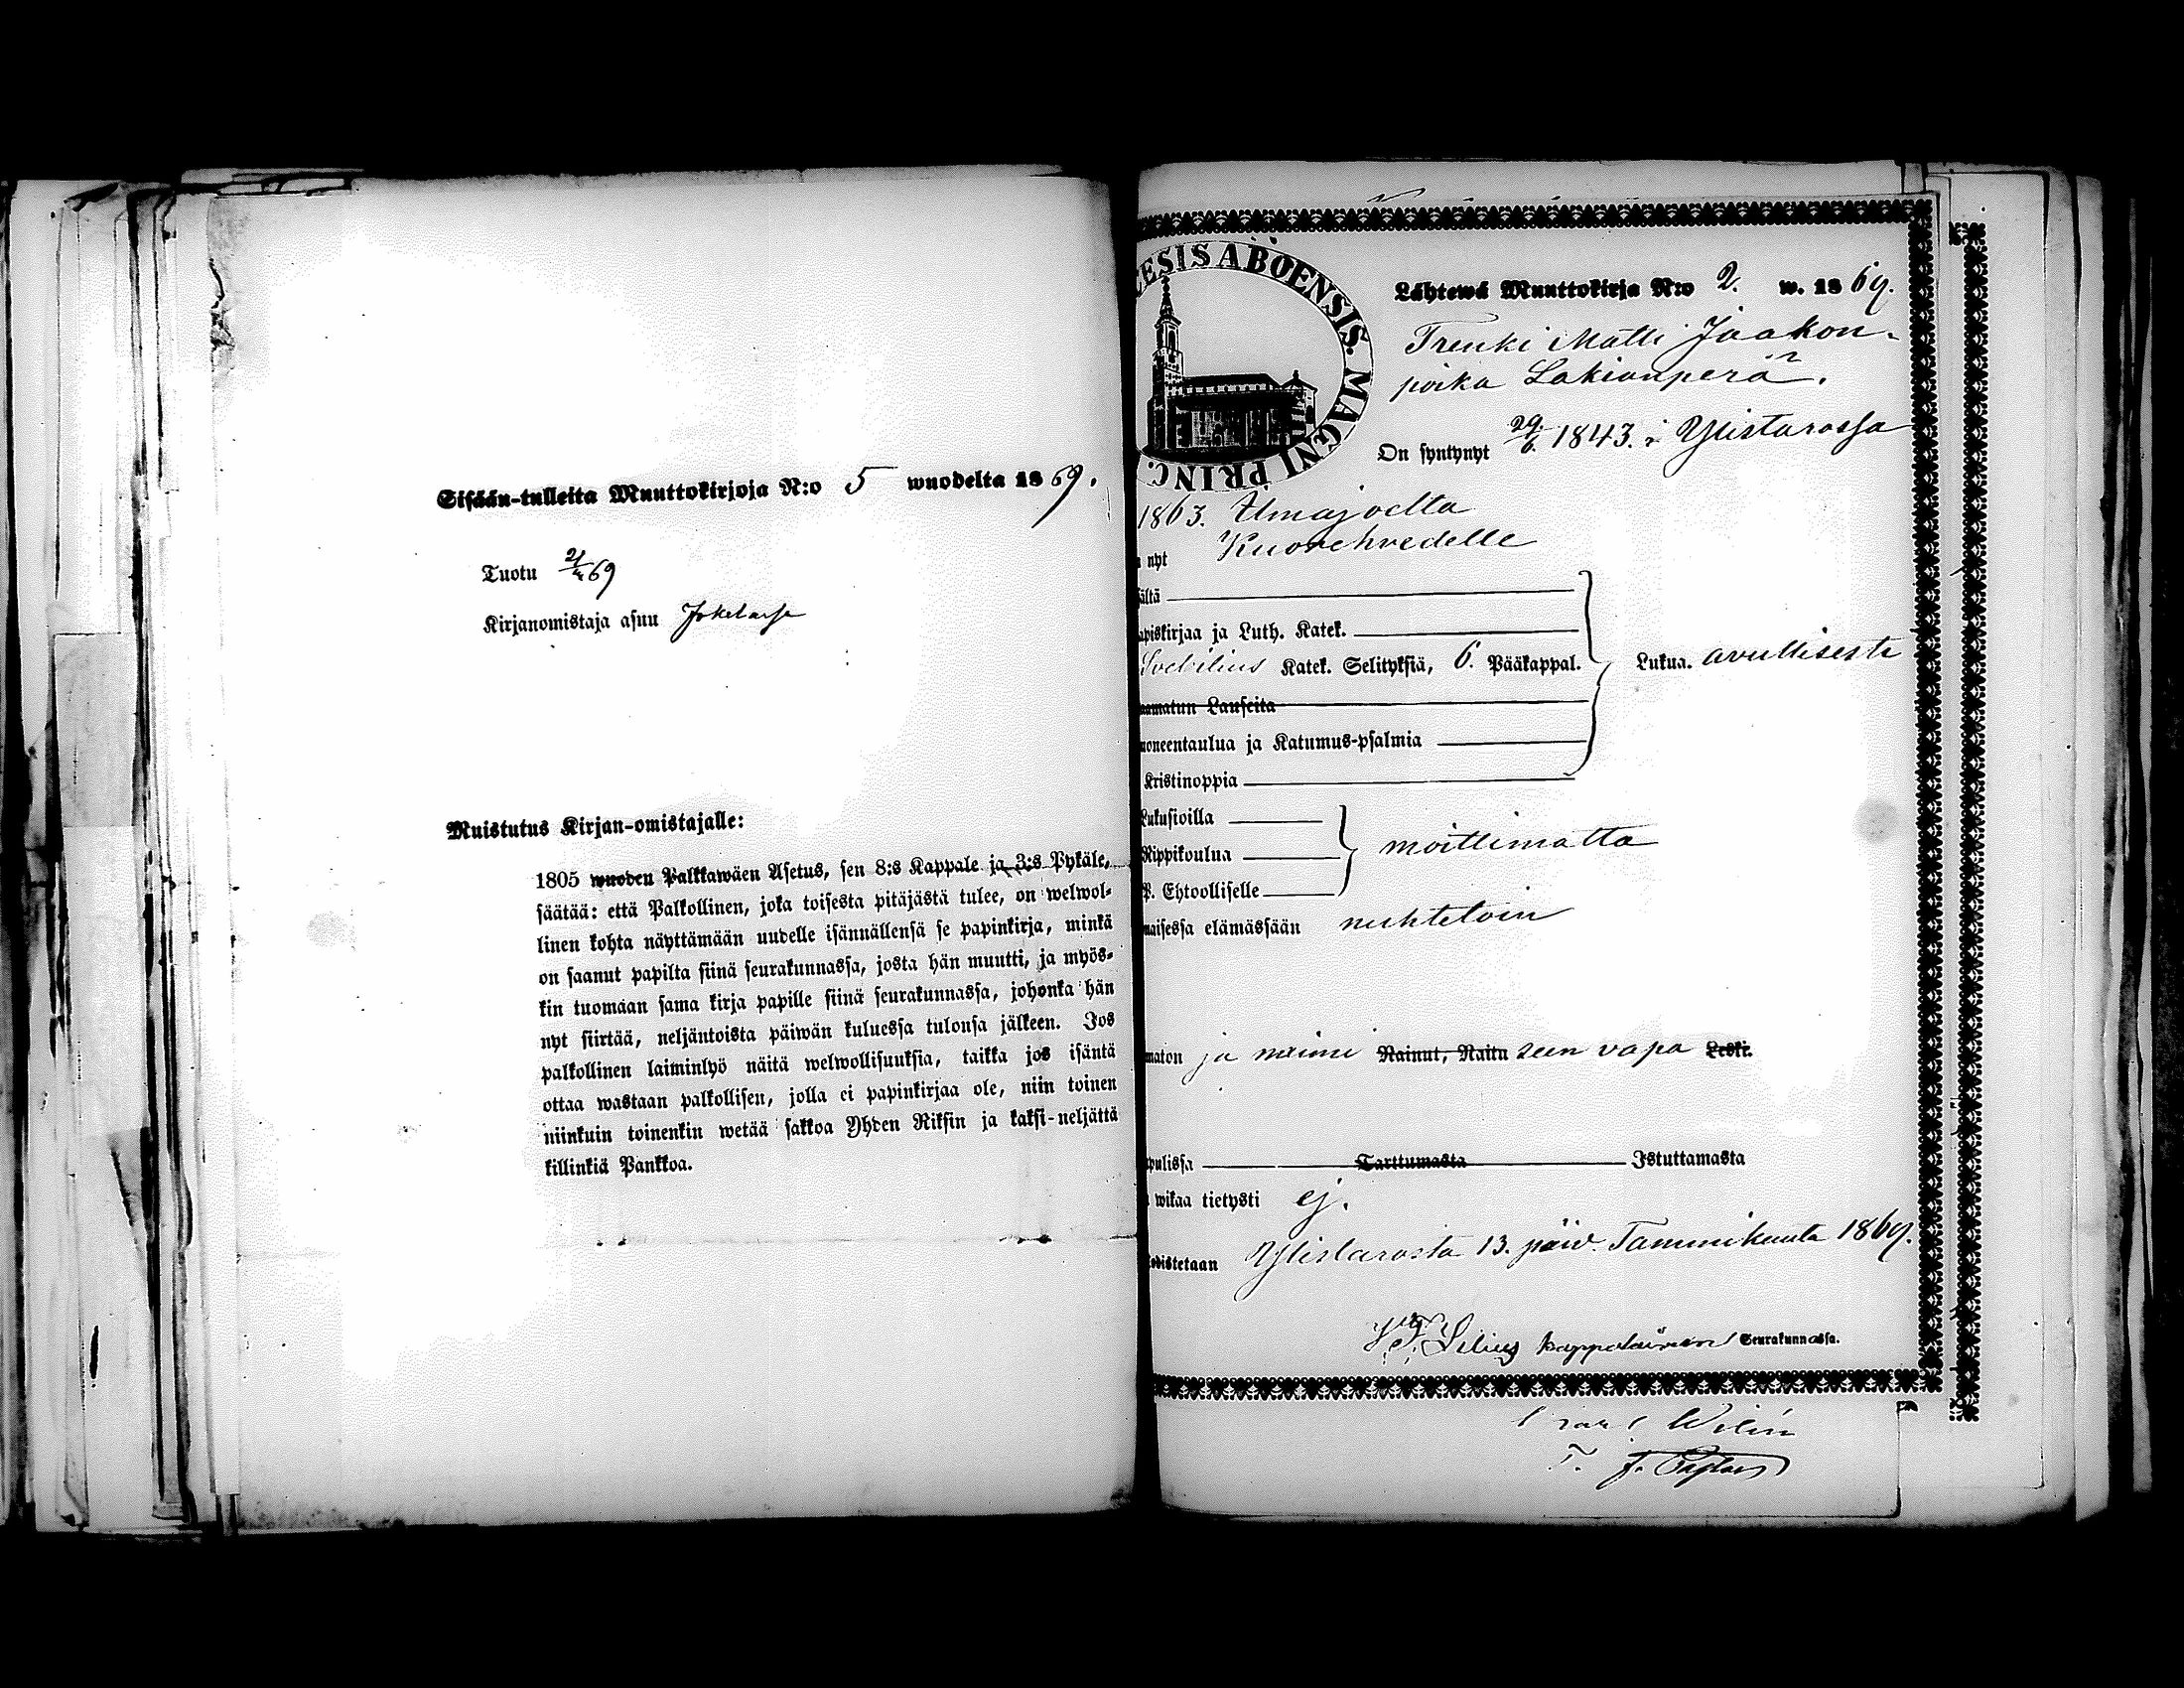 Sisään-tulleita Muuttokirjoja N:o 5 wuodelta 1869.
Tuotu 2/4 69
Kirjanomistaja asuu
Muistutus Kirjan-omistajalle:
1805 wuoden Palkkawäen Asetus, sen 8:s Kappale ja 3:s Pykäle,
säätää: että Palkollinen, joka toisesta pitäjästä tulee, on welwol-
linen kohta näyttämään uudelle isännällensä se papinkirja, minkä
on saanut papilta siinä seurakunnassa, josta hän muutti, ja myös-
kin tuomaan sama kirja papille siinä seurakunnassa, johonka hän
nyt siirtää, neljäntoista päiwän kuluessa tulonsa jälkeen. Jos
palkollinen laiminlyö näitä welwollisuuksia, taikka jos isäntä
ottaa wastaan palkollisen, jolla ei papinkirjaa ole, niin toinen
niinkuin toinenkin wetää sakkoa Yhden Riksin ja kaksi-neljättä
killinkiä Pankkoa.
CESIS ABOENSIS. MAGNI PRINC.
Lähtewä Muuttokirja N:o 2. w. 1869.
Trenki Matti Jaakon-
poika Lakianperä.
On syntynyt 29/6 1843. i Ylistarossa
1863. Ilmajoelta
nyt Kuorehvedelle
ältä
apiskirjaa ja Luth. Katek.
Svebilius Katek. Selityksiä, 6. Pääkappal. Lukua. avullisesti
amatun Lauseita
uoneentaulua ja Katumus-psalmia
Kristinoppia
Lukusioilla
Rippikoulua moittimatta
P. Ehtoolliselle
maisessa elämässään nuhtetoin
maton ja naimi Nainut, Naitu seen vapa Leski.
pulissa Tarttumasta Istuttamasta
wikaa tietysti ej.
distetaan Ylistarosta 13. päiv. Tammikuuta 1869.
kappalainen Seurakunnassa.
Wilén